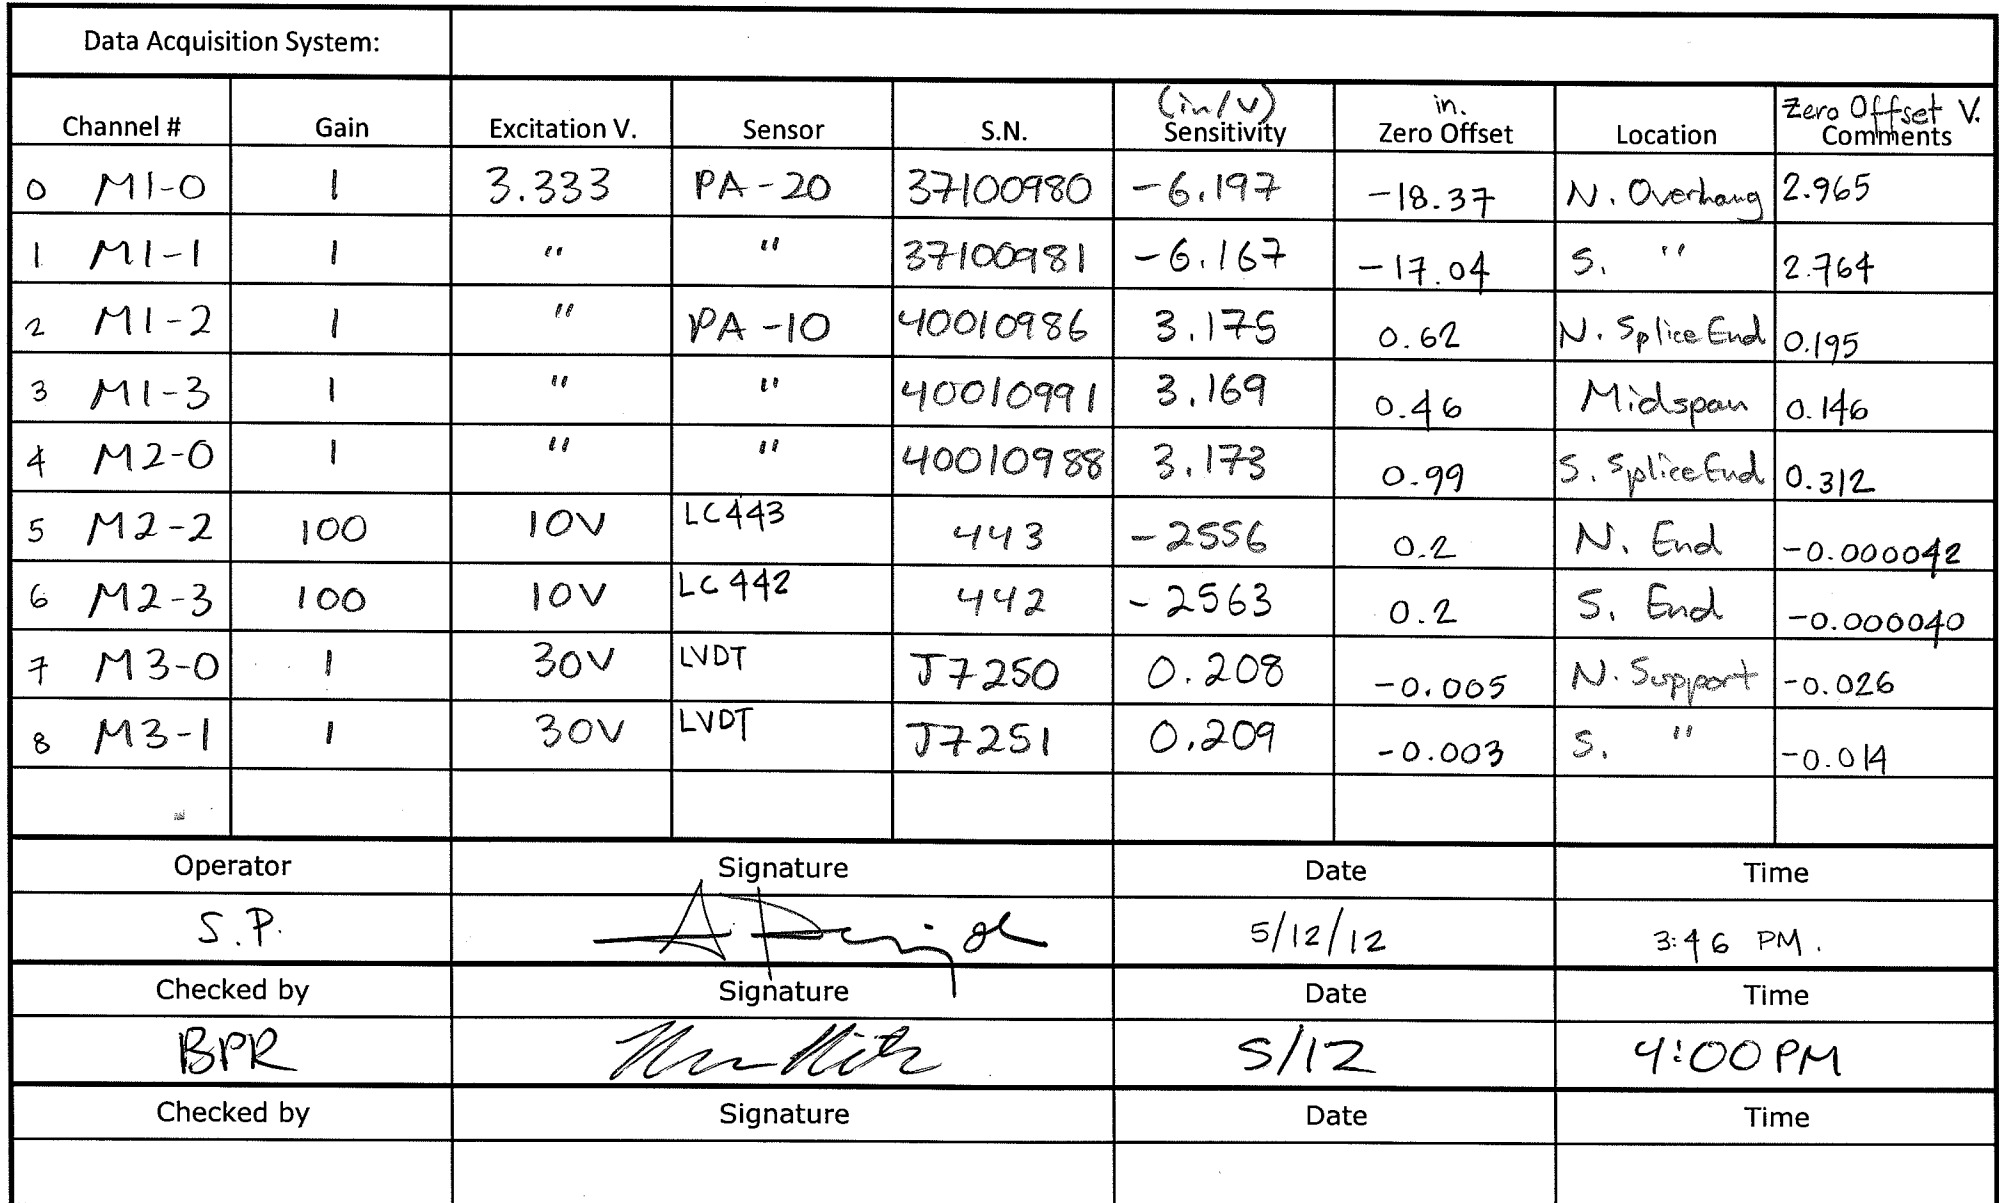 Data Acquisition System:
(in/V) in. Zero Offset V.
Channel # Gain Excitation V. Sensor S.N. Sensitivity Zero Offset Location Comments
0 M1-0 1 3.333 PA-20 37100980 -6.197 -18.37 N. Overhang 2.965
1 M1-1 1 " " 37100981 -6.167 -17.04 S. " 2.764
2 M1-2 1 " PA-10 40010986 3.175 0.62 N. Splice End 0.195
3 M1-3 1 " " 40010991 3.169 0.46 Midspan 0.146
4 M2-0 1 " " 40010988 3.173 0.99 S. Splice End 0.312
5 M2-2 100 10V LC443 443 -2556 0.2 N. End -0.000042
6 M2-3 100 10V LC442 442 -2563 0.2 S. End -0.000040
7 M3-0 1 30V LVDT J7250 0.208 -0.005 N. Support -0.026
8 M3-1 1 30V LVDT J7251 0.209 -0.003 S. " -0.014
Operator Signature Date Time
S.P. 5/12/12 3:46 PM.
Checked by Signature Date Time
BPR 5/12 4:00 PM
Checked by Signature Date Time